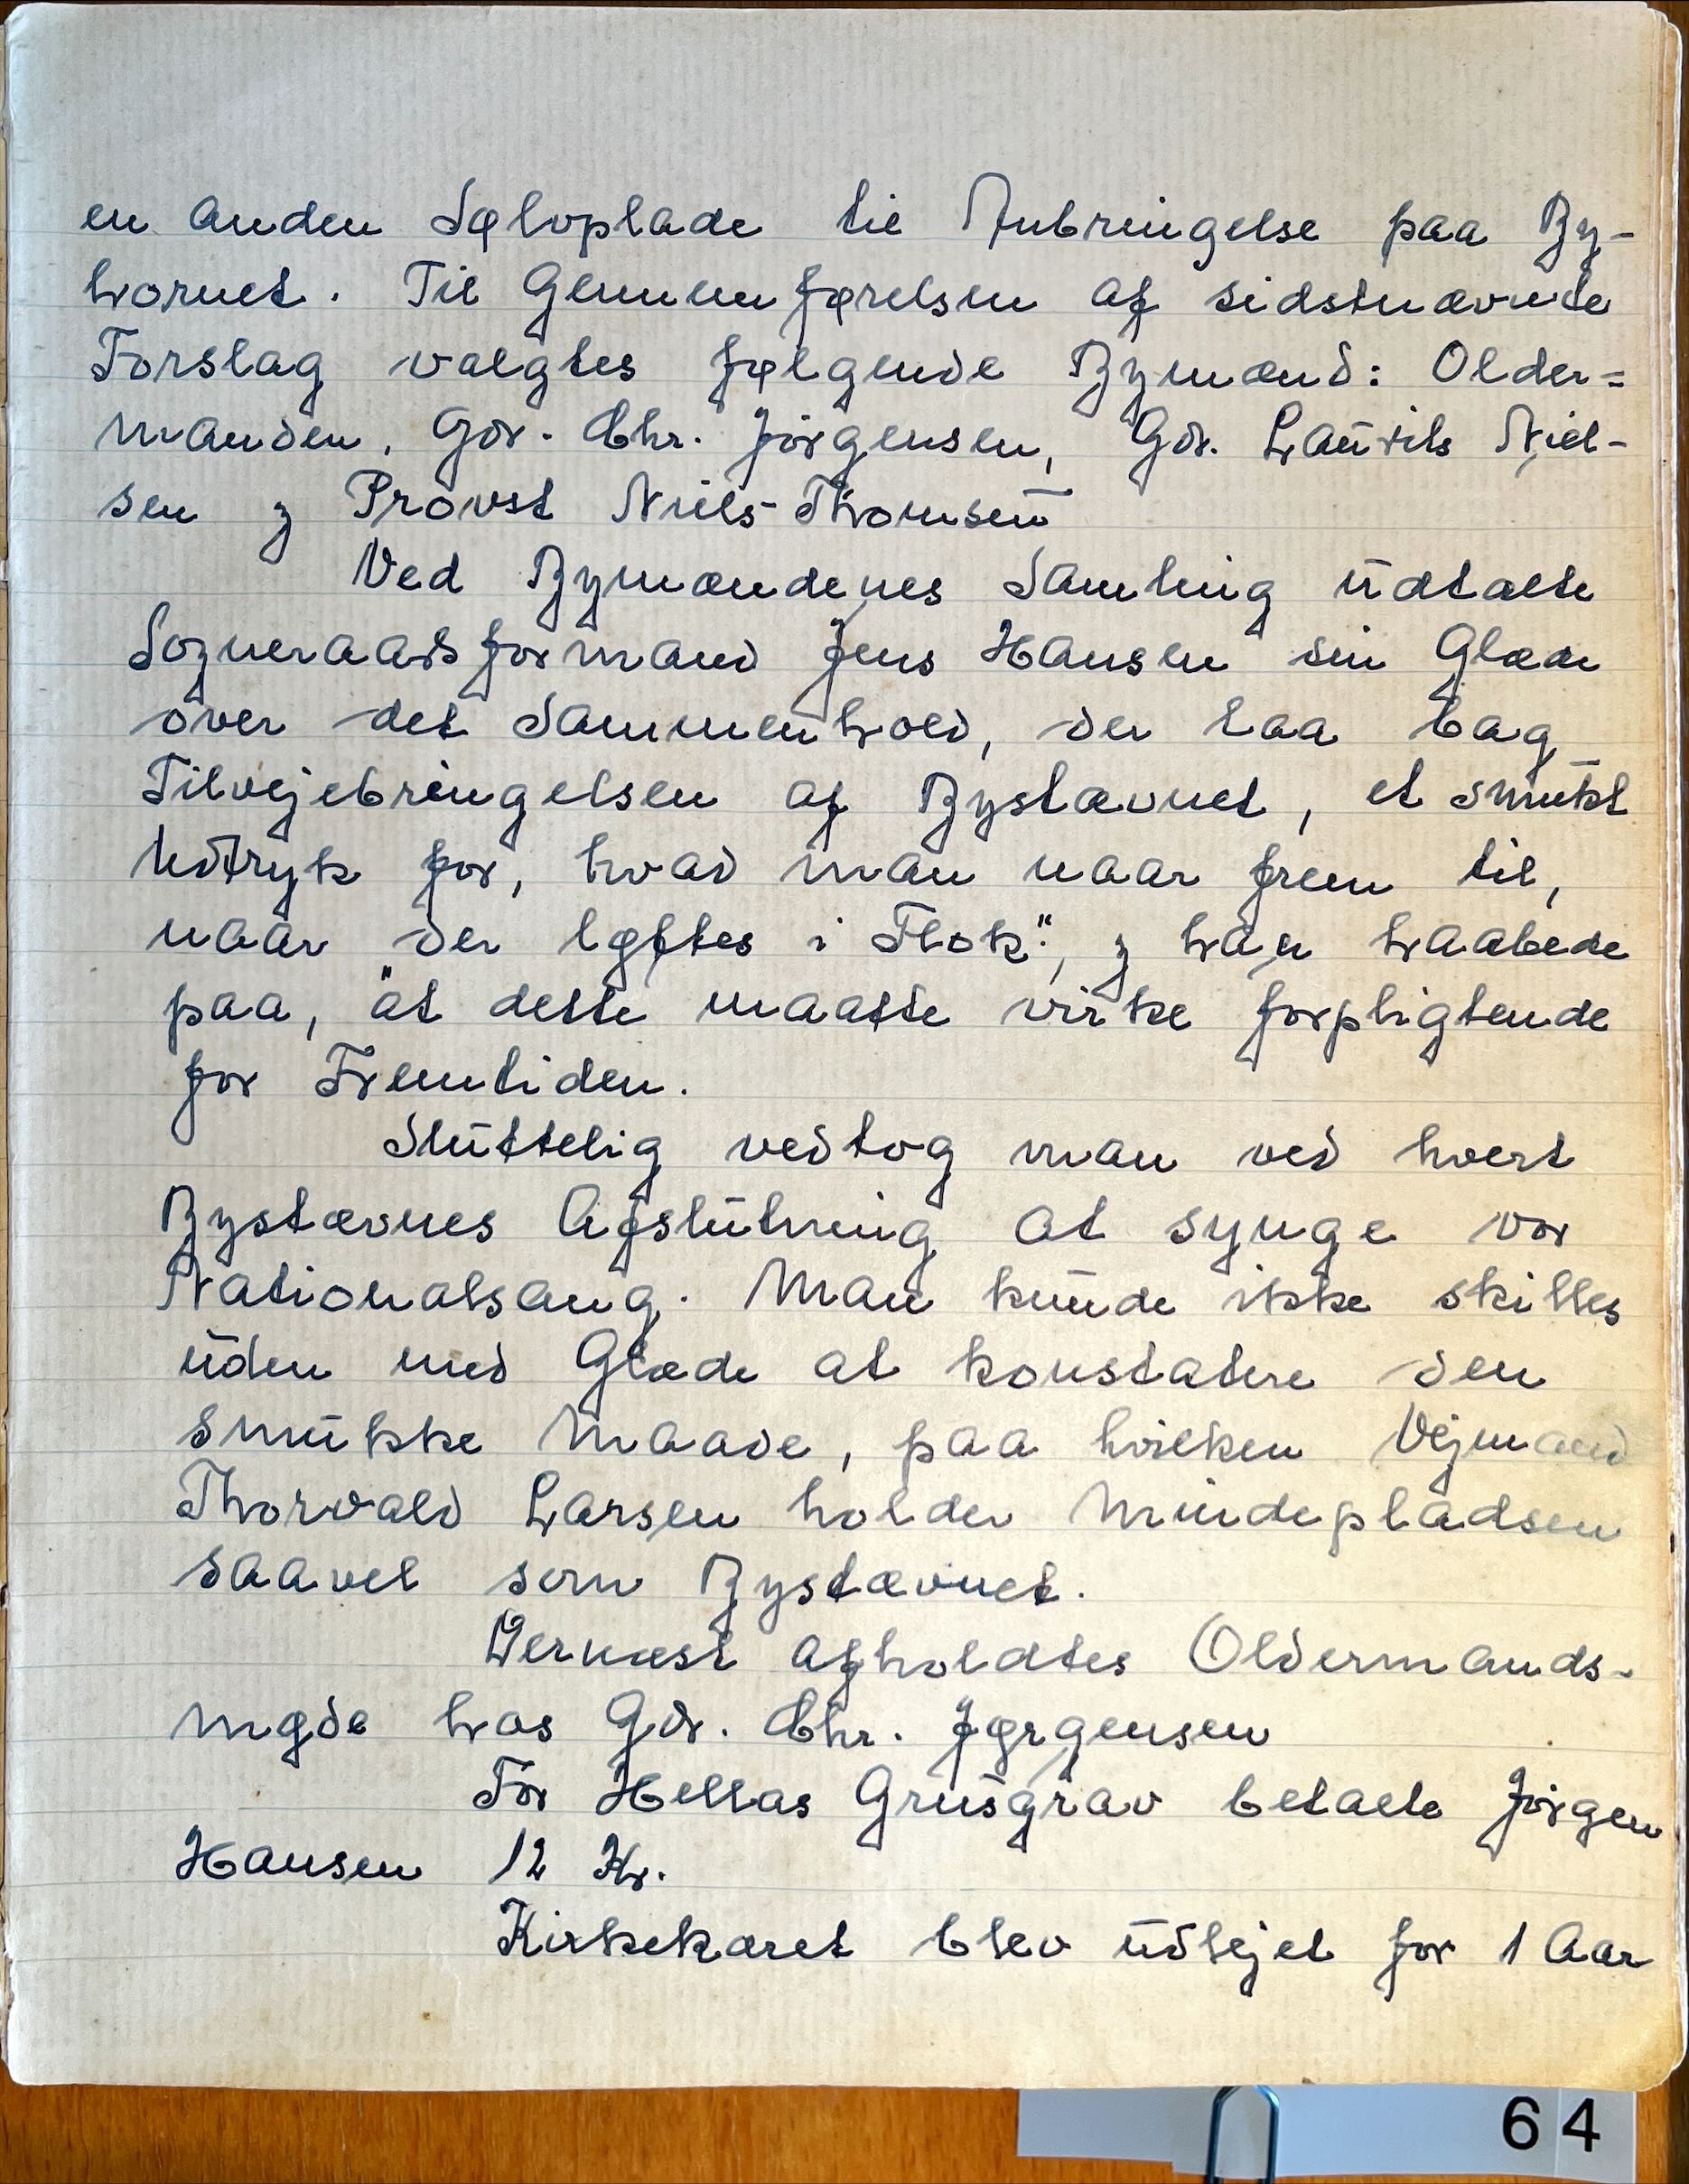 en anden Sølvplade til Anbringelse paa By-
hornet. Til Gennemførelsen af sidstnævnte
Forslag valgtes følgende Bymænd: Older=
manden, Gdr. Chr. Jörgensen, Gdr. Laurits Niel-
sen og Provst Niels-Thomsen
Ved Bymændenes Samling udtalte
Sogneraadsformand Jens Hansen sin Glæde
over det Sammenhold, der laa bag
Tilvejebringelsen af Bystævnet, et smukt
Udtryk for, hvad man naar frem til,
naar der løftes i Flok", og han haabede
paa, "at dette maatte virke forpligtende
for Fremtiden.
Sluttelig vedtog man ved hvert
Bystævnes Afslutning at synge vor
Nationalsang. Man kunde ikke skilles
uden med Glæde at konstatere den
smukke Maade, paa hvilken Vejmand
Thorvald Larsen holder Mindepladsen
saavel som Bystævnet.
Dernæst afholdtes Oldermands-
møde hos Gdr. Chr. Jørgensen
For Hellas Grusgrav betalte Jörgen
Hansen 12 Kr.
Kirkekæret blev udlejet for 1 Aar
64